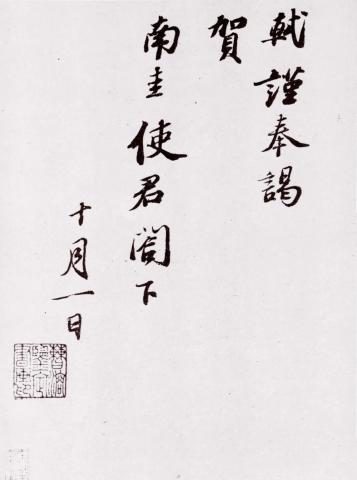 軾謹奉謁
賀
南圭使君閤下
十月一日